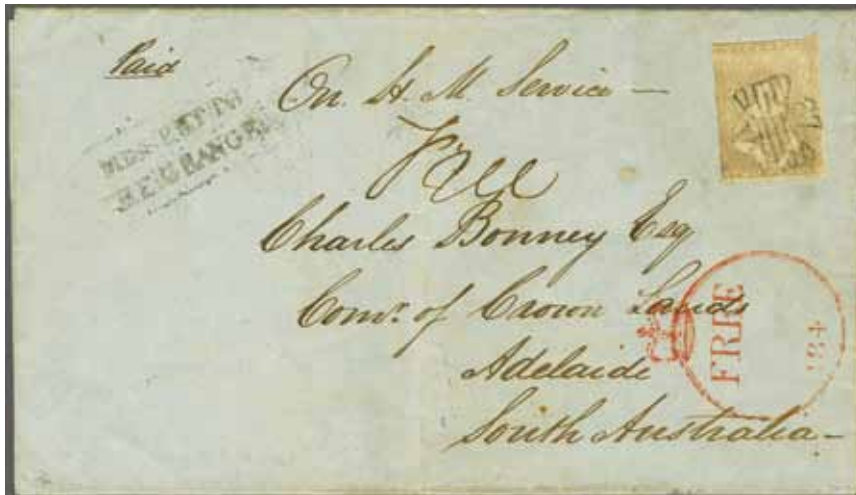 Paid
On. H. M. Service —
Free
Charles Bonney Esq
Comr. of Crown Lands
Adelaide
South Australia —
FREE
184